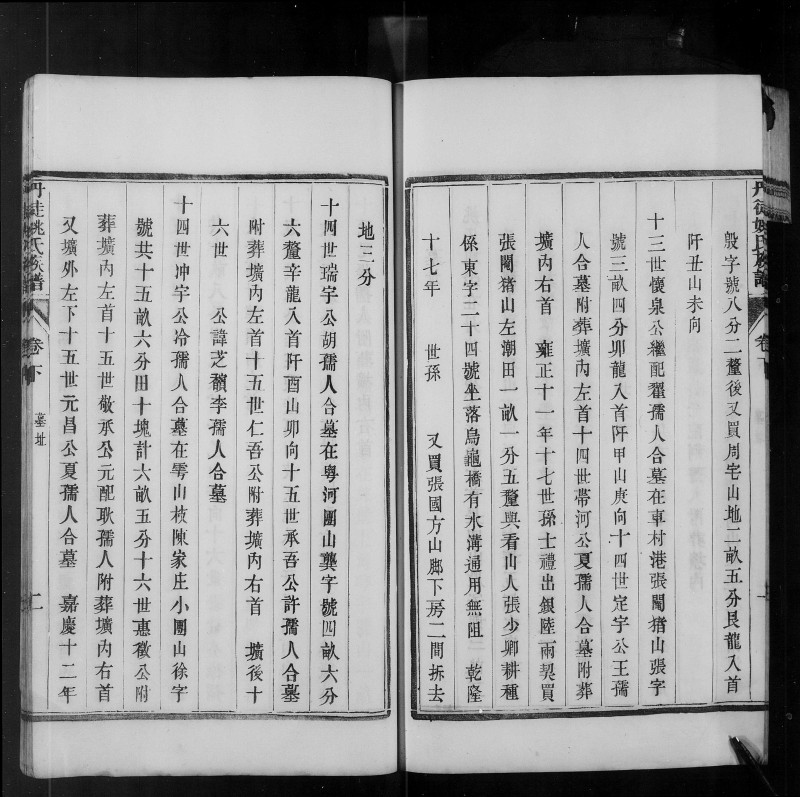 殷字號八分二釐後又買周宅山地二畝五分艮龍入首
阡丑山未向
十三世懷泉公繼配翟孺人合墓在車村港張閹猪山張字
號三畝四分卯龍入首阡甲山庚向十四世定宇公王孺
人合墓附葬壙內左首十四世帶河公夏孺人合墓附葬
壙內右首 雍正十一年十七世孫士禮出銀陸兩契買
張閹猪山左潮田一畝一分五釐與看山人張少卿耕種
係東字二十四號坐落烏龜橋有水溝通用無阻 乾隆
十七年 世孫 又買張國方山脚下房二間拆去
丹徒姚氏族譜 卷下
地三分
十四世瑞宇公胡孺人合墓在粤河團山龔字號四畝六分
六釐辛龍入首阡酉山卯向十五世承吾公許孺人合墓
附葬壙內左首十五世仁吾公附葬壙內右首 壙後十
六世 公諱芝馥李孺人合墓
十四世冲宇公冷孺人合墓在雩山枝陳家庄小團山徐字
號共十五畝六分田十塊計六畝五分十六世惠徵公附
葬壙內左首十五世敬承公元配耿孺人附葬壙內右首
又壙外左下十五世元昌公夏孺人合墓 嘉慶十二年
丹徒姚氏族譜 卷下 墓址